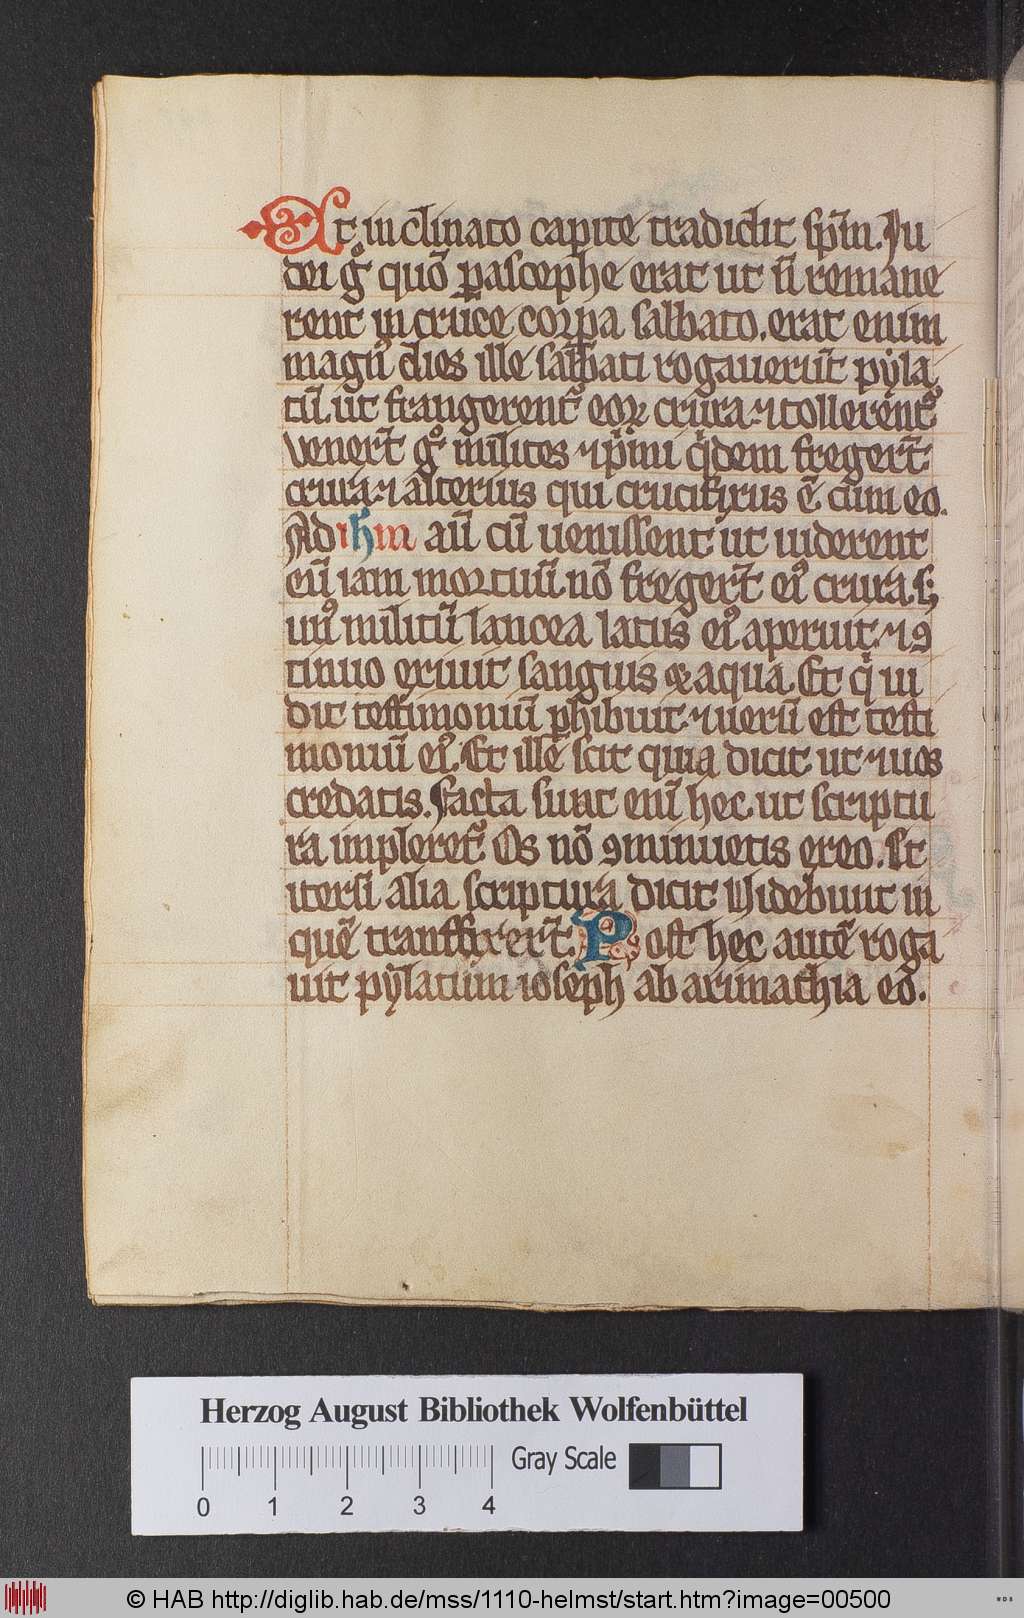 Et inclinato capite tradidit sp̄m. Iu
dei gͦ quō pascephe erat ut n̄ remane
rent in cruce corꝑa sabbato. erat enim
magn̄ dies ille sabbati rogauerūt pyla
tū. ut frangerent᷑ eoꝝ crura. ⁊ tollerent᷑.
Venerūt gͦ milites ⁊ pⁱmi qⁱdem fregerūt
crura. ⁊ alterius qui crucifixus ē cum eo.
Ad ihm aū cū uenissent ut uiderent
eū iam mortuū nō fregerūt eiꝰ crura. sꝫ
unꝰ militū lancea latus eiꝰ aperuit. ⁊ ꝯ
tinuo exiuit sanguis et aqua. Et qⁱ ui
dit testimoniū ꝑhibuit. ⁊ uerū est testi
moniū eiꝰ. Et ille scit quia dicit ut ⁊ uos
credatis. Facta sunt enī hec ut scriptu
ra impleret᷑. Os nō ꝯminuetis ex eo. Et
itersū alia scriptura dicit Videbunt in
quē transfixerūt. Post hec autē roga
uit pylatum ioseph ab arimathia eo.
Herzog August Bibliothek Wolfenbüttel
0 1 2 3 4 Gray Scale
© HAB http://diglib.hab.de/mss/1110-helmst/start.htm?image=00500